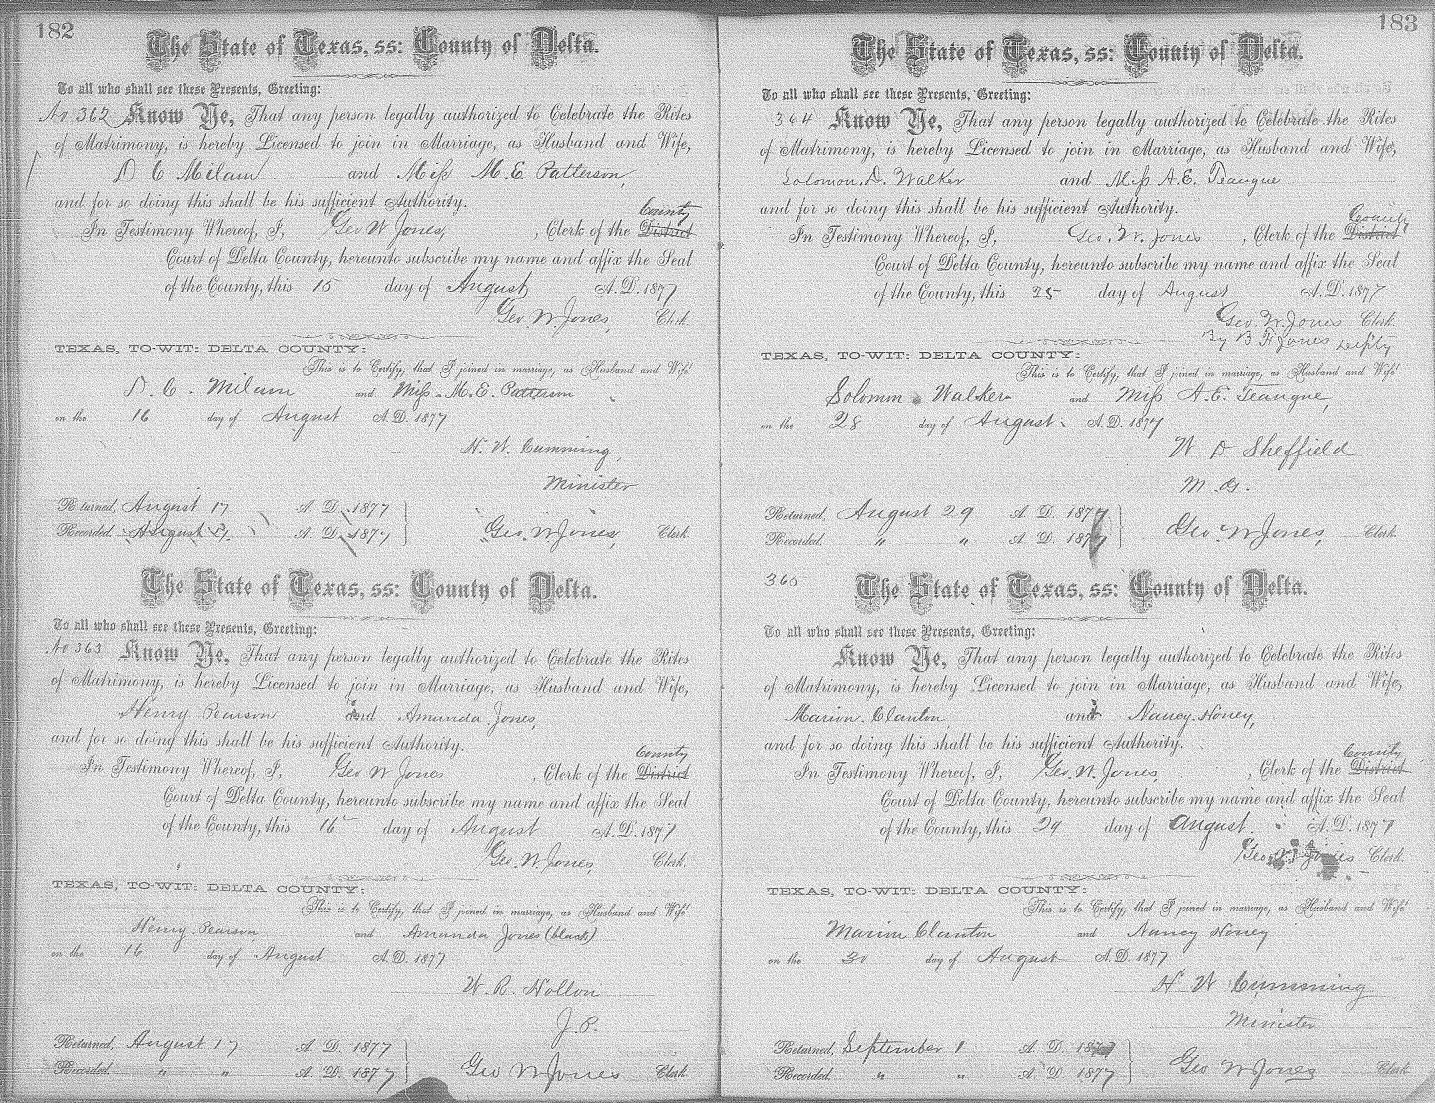 182
The State of Texas, ss: County of Delta.
To all who shall see these Presents, Greeting:
No 362 Know Ye, That any person legally authorized to Celebrate the Rites
of Matrimony, is hereby Licensed to join in Marriage, as Husband and Wife,
D C Milam and Miss M. E. Patterson,
and for so doing this shall be his sufficient Authority.
County
In Testimony Whereof, I, Geo W Jones, , Clerk of the District
Court of Delta County, hereunto subscribe my name and affix the Seal
of the County, this 15 day of August A.D. 1877
Geo. W. Jones, Clerk
TEXAS, TO-WIT: DELTA COUNTY:
This is to Certify, that I joined in marriage, as Husband and Wife
D. C. Milam and Miss M. E. Patterson
on the 16 day of August A.D. 1877
H. W. Cumming,
Minister
Returned, August 17 A. D. 1877
Recorded. August 17. A. D. 1877
Geo. W Jones, Clerk
The State of Texas, ss: County of Delta.
To all who shall see these Presents, Greeting:
No 363 Know Ye, That any person legally authorized to Celebrate the Rites
of Matrimony, is hereby Licensed to join in Marriage, as Husband and Wife,
Henry Pearson and Amanda Jones,
and for so doing this shall be his sufficient Authority.
County
In Testimony Whereof, I, Geo W Jones , Clerk of the District
Court of Delta County, hereunto subscribe my name and affix the Seal
of the County, this 16 day of August A.D. 1877
Geo. W Jones, Clerk.
TEXAS, TO-WIT: DELTA COUNTY:
This is to Certify, that I joined in marriage, as Husband and Wife
Henry Pearson and Amanda Jones (black)
on the 16 day of August A.D. 1877
W. R. Holton
J. P.
Returned, August 17 A. D. 1877
Recorded. " " A. D. 1877
Geo W Jones Clerk
183
The State of Texas, ss: County of Delta.
To all who shall see these Presents, Greeting:
364 Know Ye, That any person legally authorized to Celebrate the Rites
of Matrimony, is hereby Licensed to join in Marriage, as Husband and Wife,
Solomon. D. Walker and Miss A. E. Teaugue
and for so doing this shall be his sufficient Authority.
County
In Testimony Whereof, I, Geo. W. Jones , Clerk of the District
Court of Delta County, hereunto subscribe my name and affix the Seal
of the County, this 25 day of August A.D. 1877
Geo. W. Jones Clerk
By B F Jones Depty
TEXAS, TO-WIT: DELTA COUNTY:
This is to Certify, that I joined in marriage, as Husband and Wife
Solomon Walker and Miss A. E. Teaugue,
on the 28 day of August. A.D. 1877
W D Sheffield
M. G.
Returned, August 29 A. D. 1877
Recorded. " " A. D. 1877
Geo. W Jones, Clerk
365
The State of Texas, ss: County of Delta.
To all who shall see these Presents, Greeting:
Know Ye, That any person legally authorized to Celebrate the Rites
of Matrimony, is hereby Licensed to join in Marriage, as Husband and Wife,
Marion. Clanton and Nancy. Honey,
and for so doing this shall be his sufficient Authority.
County
In Testimony Whereof, I, Geo. W. Jones, , Clerk of the District
Court of Delta County, hereunto subscribe my name and affix the Seal
of the County, this 29 day of August. A.D. 1877
Geo. W Jones Clerk.
TEXAS, TO-WIT: DELTA COUNTY:
This is to Certify, that I joined in marriage, as Husband and Wife
Marion Clanton and Nancy Honey
on the 30 day of August A.D. 1877
H W Cumming
Minister
Returned, September 1 A. D. 1877
Recorded. " " A. D. 1877
Geo W Jones Clerk